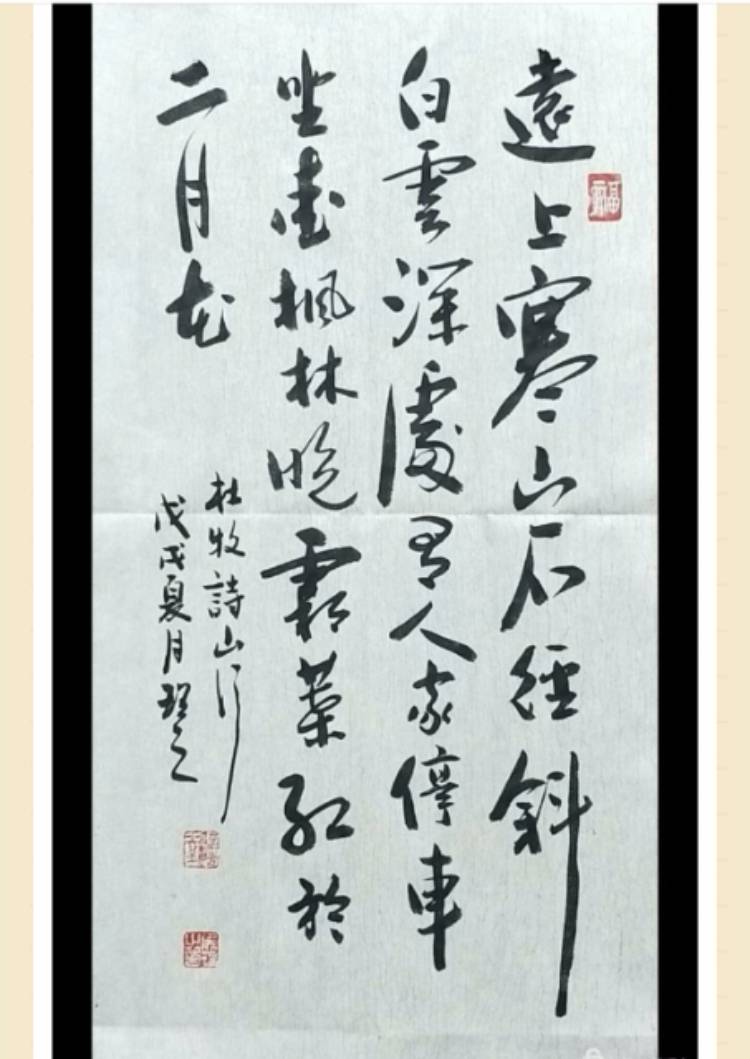 遠上寒山石徑斜
白雲深處有人家停車
坐愛楓林晚霜葉紅於
二月花
杜牧詩山行
戊戌夏月